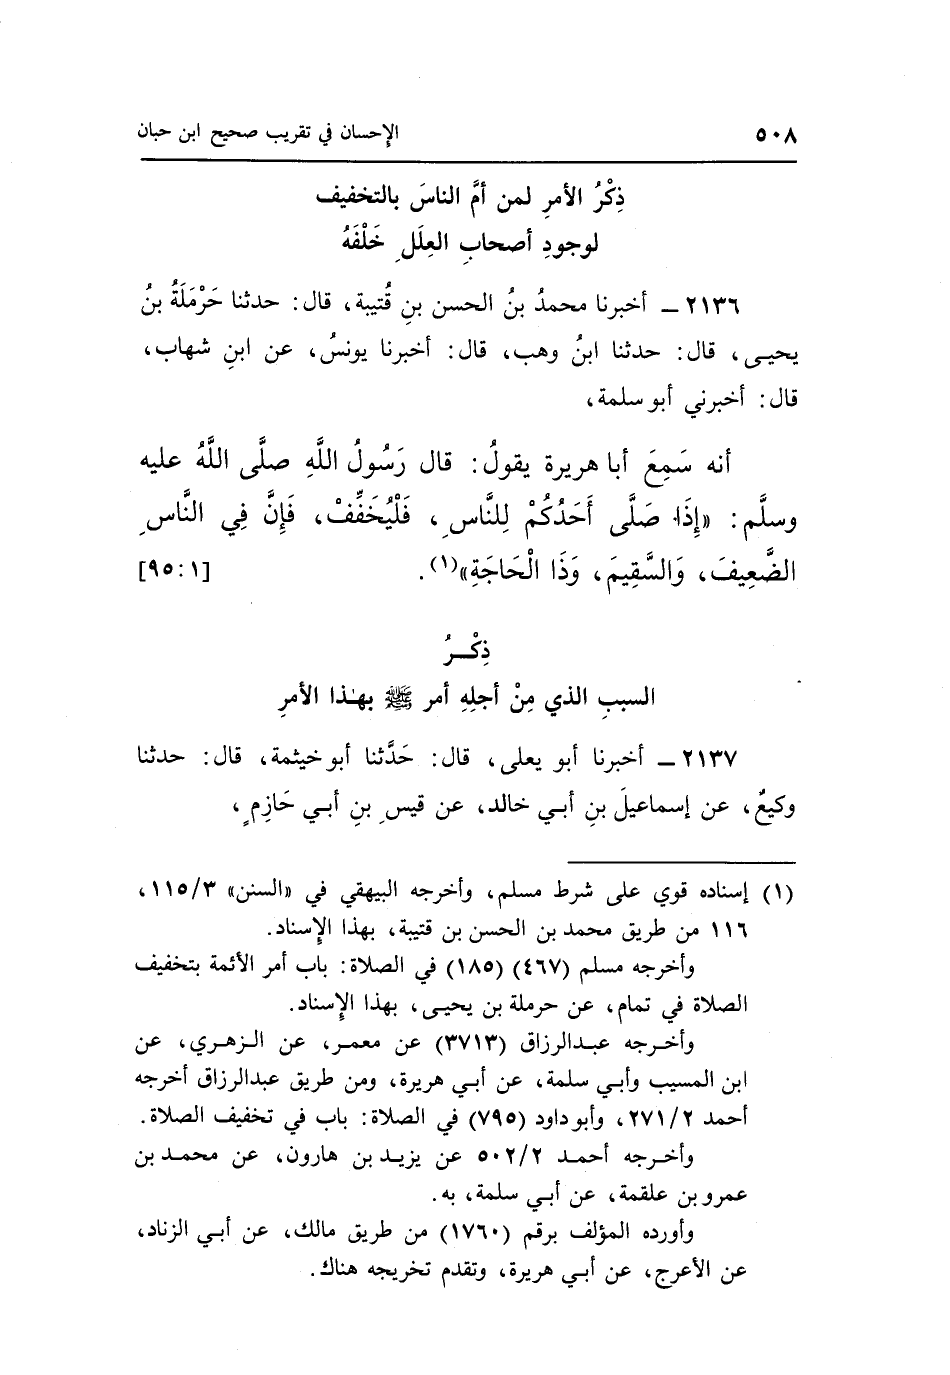 ٥٠٨ الإحسان في تقريب صحيح ابن حبان
ذِكْرُ الأمرِ لمن أمَّ الناسَ بالتخفيف
لوجودِ أصحابِ العِلَلِ خَلْفَهُ
٢١٣٦ ـ أخبرنا محمدُ بنُ الحسن بنِ قُتيبة، قال: حدثنا حَرْمَلَةُ بنُ
يحيـى، قال: حدثنا ابنُ وهب، قال: أخبرنا يونسُ، عن ابنِ شهاب،
قال: أخبرني أبو سلمة،
أنه سَمِعَ أبا هريرة يقولُ: قال رَسُولُ اللَّهِ صلَّى اللَّهُ عليه
وسلَّم: «إِذَا صَلَّى أَحَدُكُمْ لِلنَّاسِ، فَلْيُخَفِّفْ، فَإِنَّ فِي النَّاسِ
الضَّعِيفَ، وَالسَّقِيمَ، وَذَا الْحَاجَةِ»(١). [٩٥:١]
ذِكْـرُ
السببِ الذي مِنْ أجلِهِ أمر ﷺ بهـٰذا الأمرِ
٢١٣٧ ـ أخبرنا أبو يعلى، قال: حَدَّثنا أبو خيثمة، قال: حدثنا
وكيعٌ، عن إسماعيلَ بنِ أبـي خالد، عن قيسِ بنِ أبـي حَازِمٍ،
(١) إسناده قوي على شرط مسلم، وأخرجه البيهقي في «السنن» ١١٥/٣،
١١٦ من طريق محمد بن الحسن بن قتيبة، بهذا الإسناد.
وأخرجه مسلم (٤٦٧) (١٨٥) في الصلاة: باب أمر الأئمة بتخفيف
الصلاة في تمام، عن حرملة بن يحيـى، بهذا الإسناد.
وأخـرجه عبـدالرزاق (٣٧١٣) عن معمـر، عن الـزهـري، عن
ابن المسيب وأبـي سلمة، عن أبـي هريرة، ومن طريق عبدالرزاق أخرجه
أحمد ٢٧١/٢، وأبو داود (٧٩٥) في الصلاة: باب في تخفيف الصلاة.
وأخـرجه أحمـد ٥٠٢/٢ عن يزيـد بن هارون، عن محمـد بن
عمرو بن علقمة، عن أبـي سلمة، به.
وأورده المؤلف برقم (١٧٦٠) من طريق مالك، عن أبـي الزناد،
عن الأعرج، عن أبـي هريرة، وتقدم تخريجه هناك.